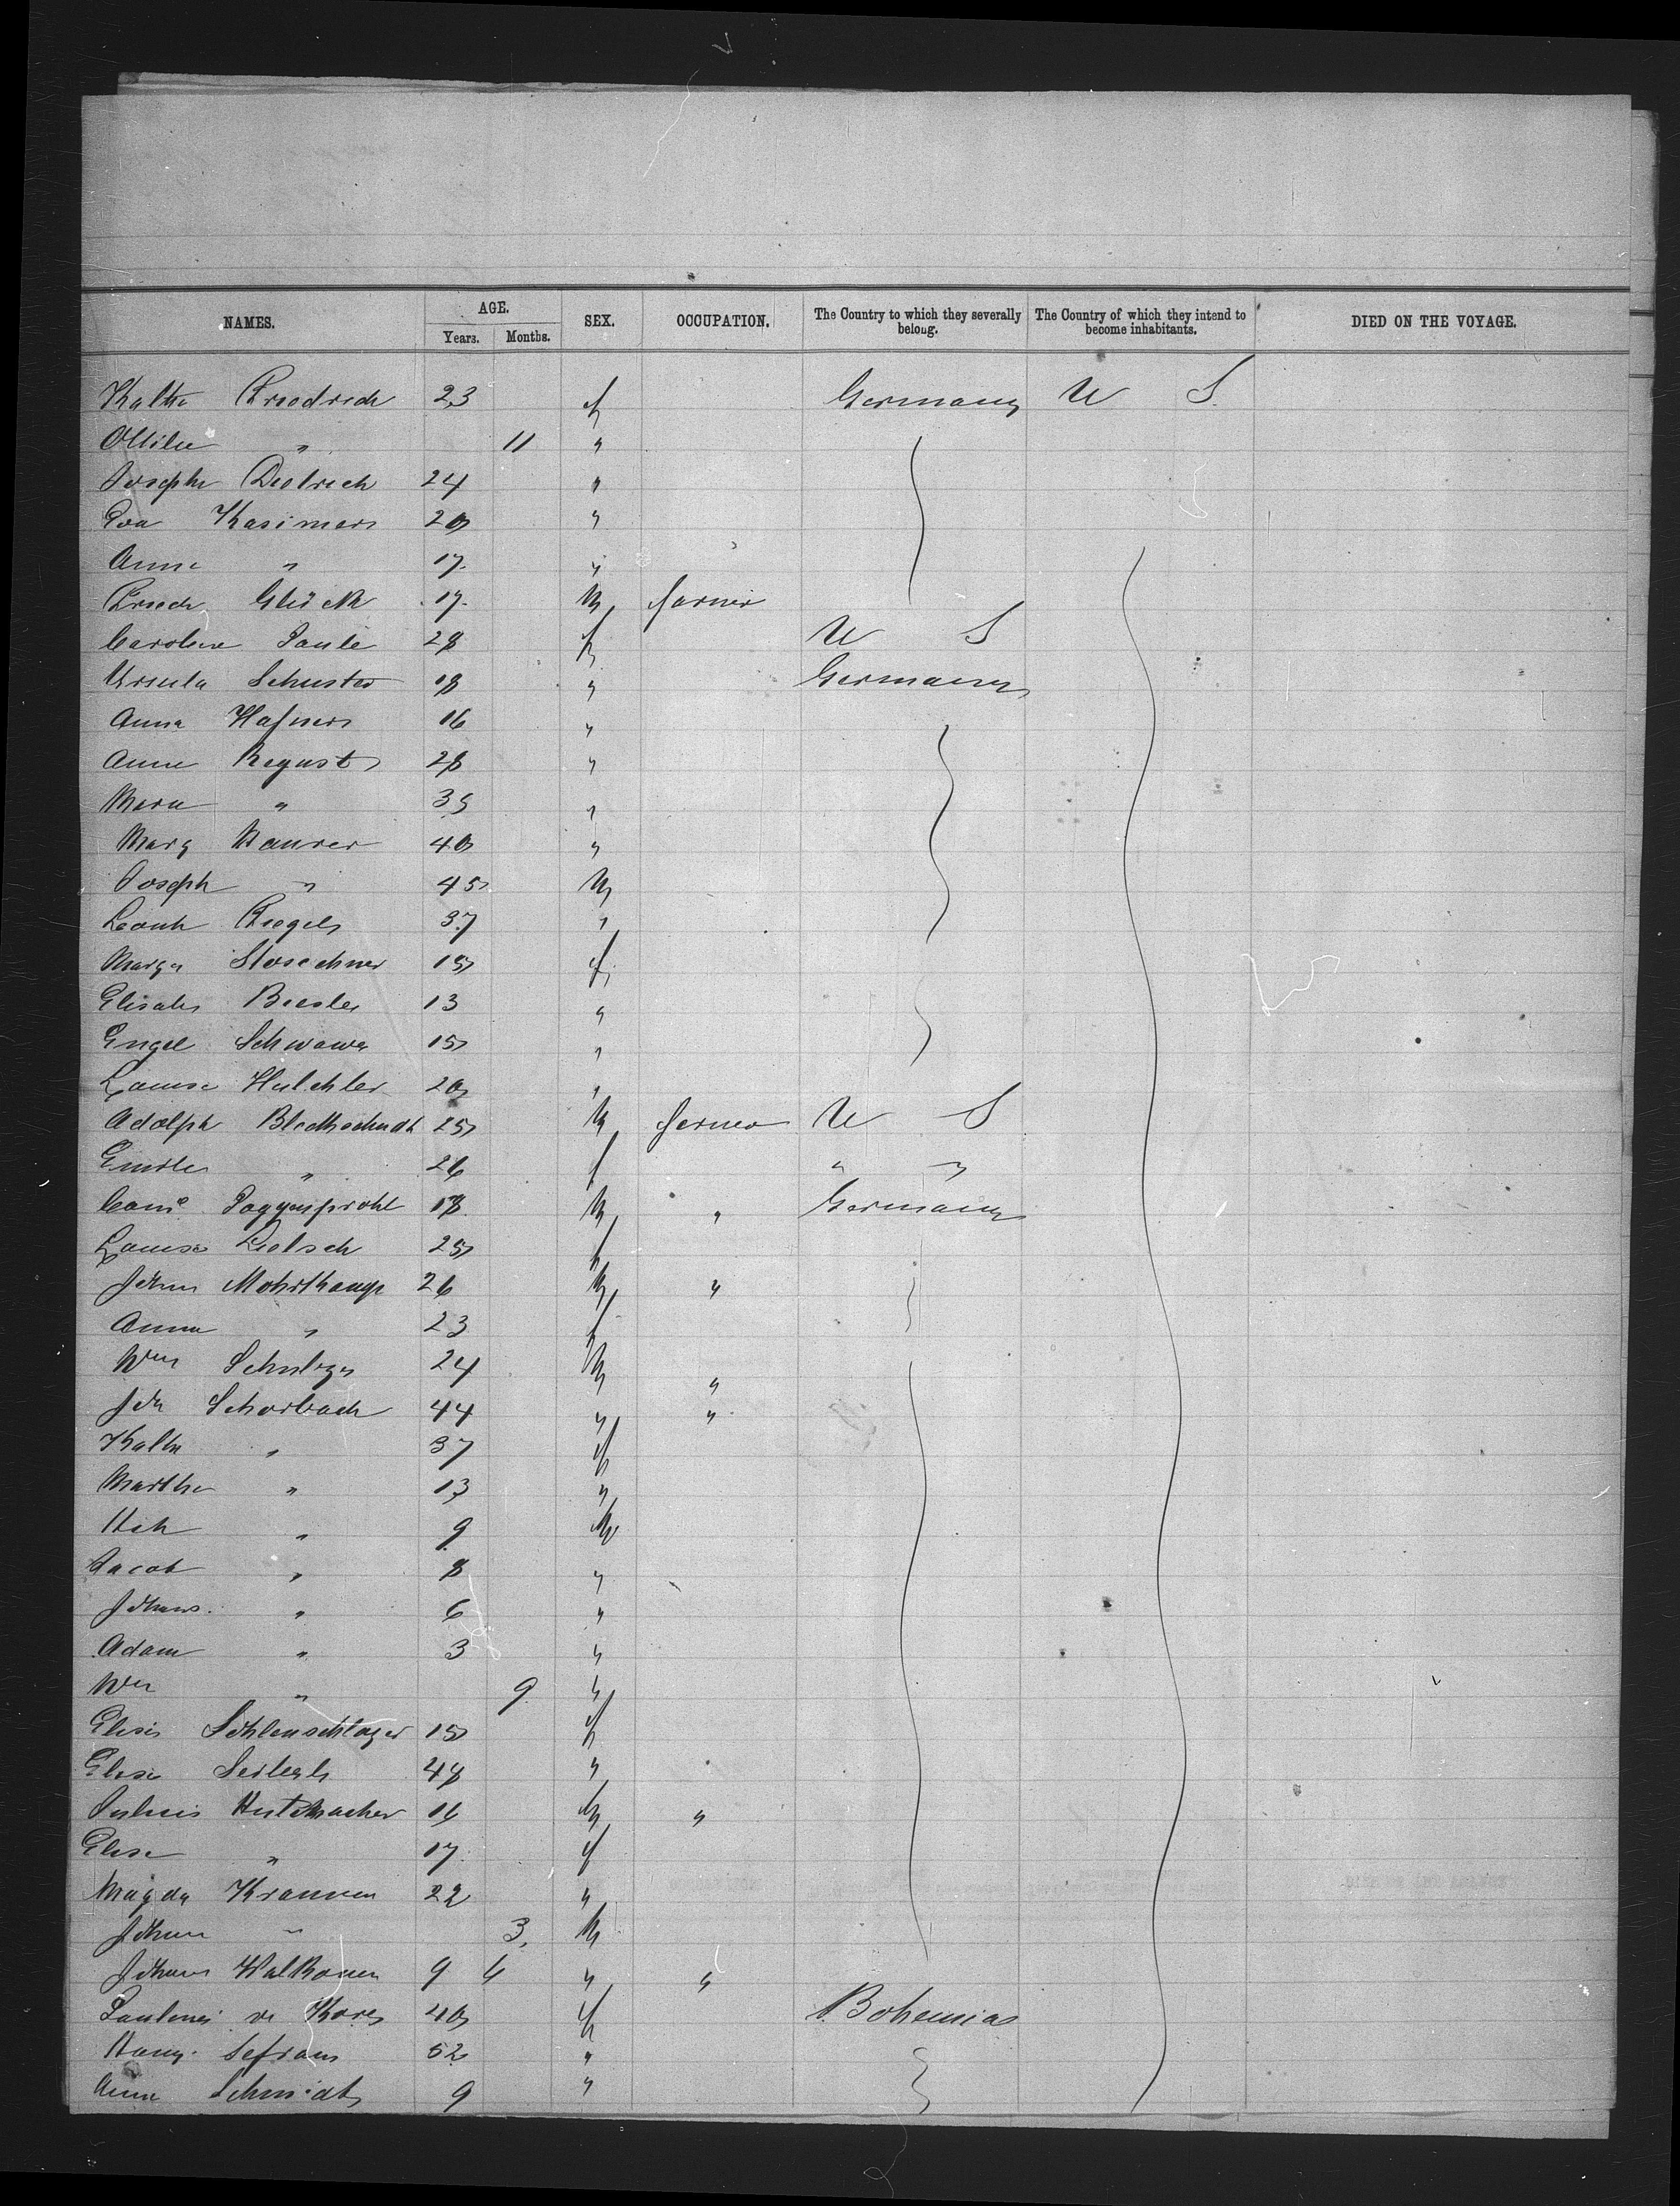 NAMES. AGE. SEX. OCCUPATION. The Country to which they severally belong. The Country of which they intend to become inhabitants. DIED ON THE VOYAGE.
Years. Months.
Kathe Friedrich 23 f Germany U S
Ottilie " 11 "
Josephe Dietrich 24 "
Eva Kasimers 20 "
Anna " 17 "
Friedr Glück 17 M farmer
Caroline Paule 28 f U S
Ursula Schuster 18 " Germany
Anna Hafners 16 "
Anna August 28 "
Maria " 35 "
Marg Maurer 40 "
Joseph " 45 M
Leonh Riegels 37 "
Marga 15 f
Elisabe Biesler 13 "
Engel Schwawa 15 "
Louise Hulchler 20 "
Adolph Blechschmdt 25 M farmer U S
Emilie " 26 f " "
18 M " Germany
Louise Lietsch 25 f
Johann Mohrkamp 26 M "
Anna " 23 f
Wm Schulze 24 M "
Joh Schorbach 44 " "
Kathe " 37 f
Martha " 13 "
Hch " 9 M
Jacob " 8 "
Johans. " 6 "
Adam " 3 "
Wm " 9 "
Elise Sohlenschlager 15 f
Elise 48 "
Julius Hutmacher 16 M "
Elise " 17 f
Magda Krannen 22 "
Johann " 3 M
Johann 9 6 " "
Pauline de Kores 40 f Bohemia
Sefrans 52 "
Anna Schmidt 9 "